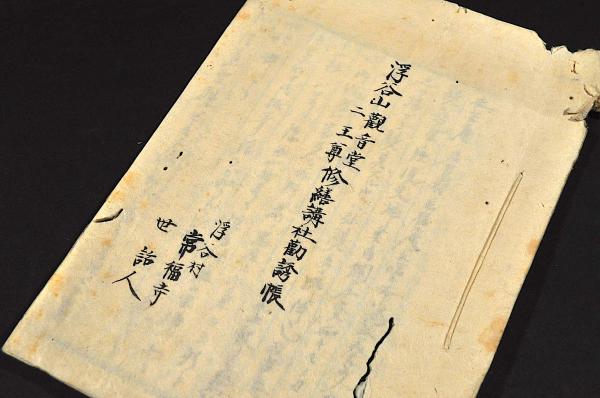 浮谷山觀音堂
二王尊修繕講社勸誘帳
浮谷村
常福寺
世話人